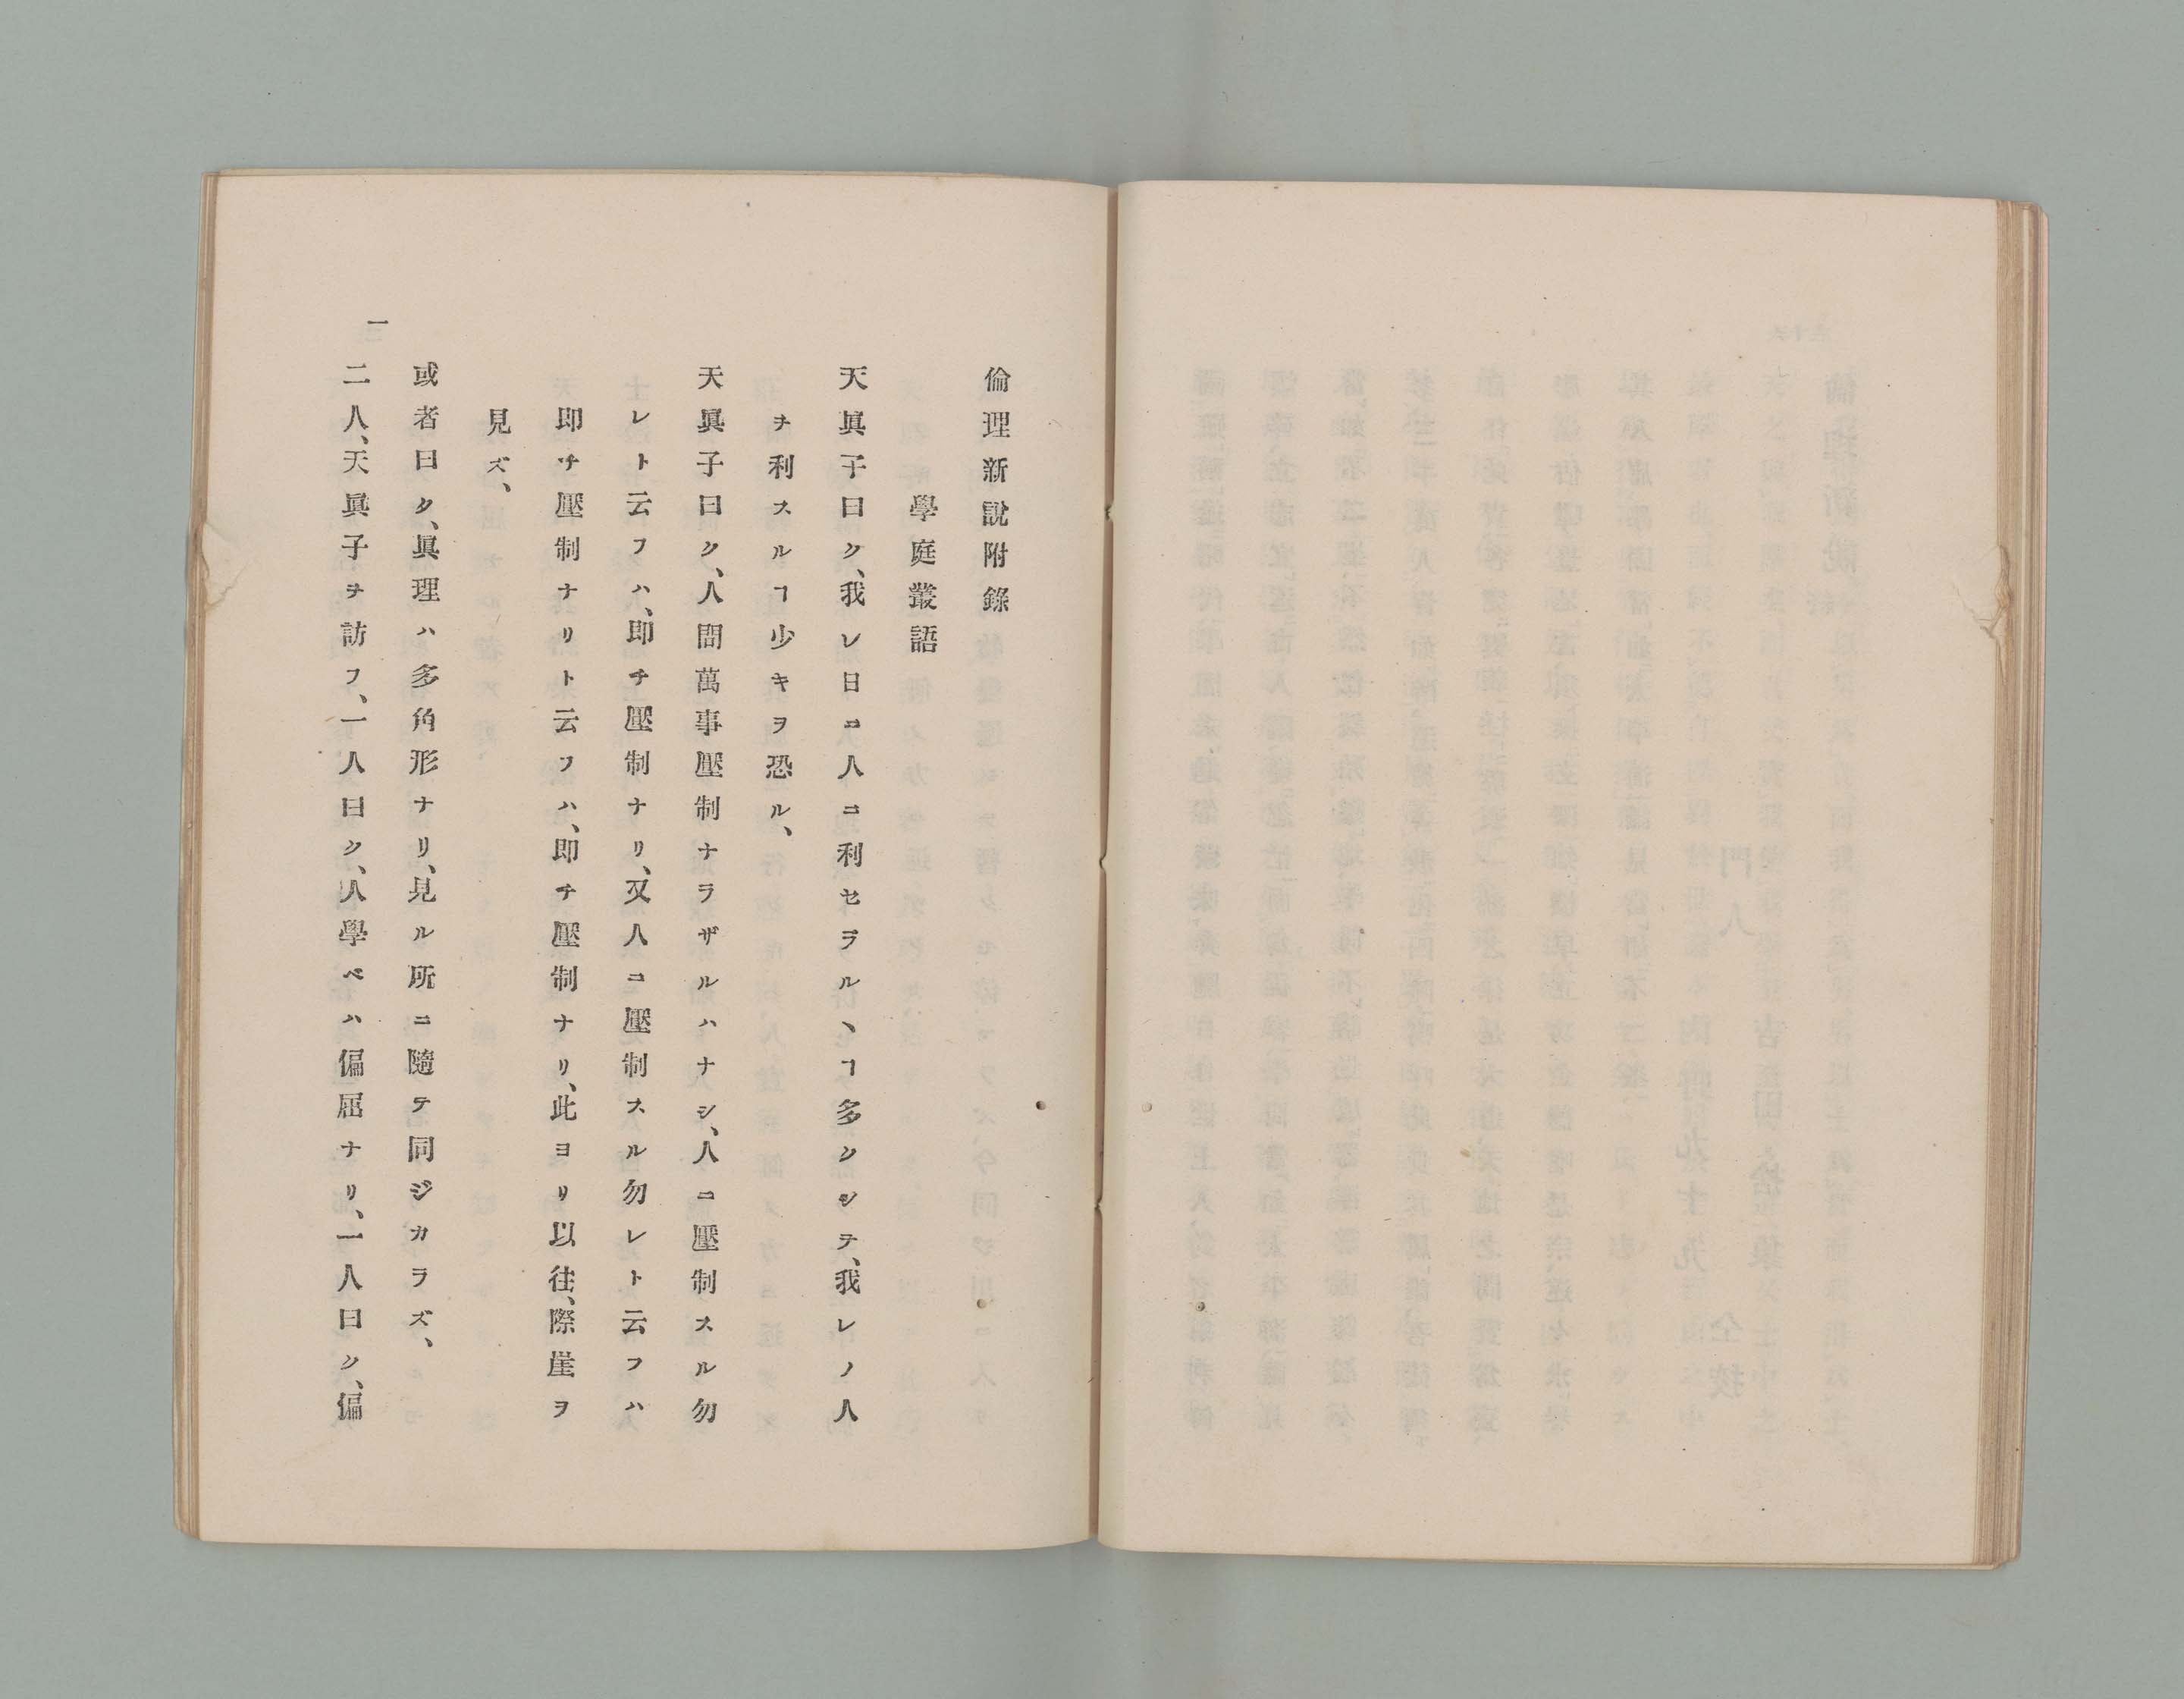 倫理新說附錄
學庭叢語
天眞子曰ク、我レ日ニ人ニ利セラルヽヿ多クシテ、我レノ人
ヲ利スルヿ少キヲ恐ル、
天眞子曰ク、人間萬事壓制ナラザルハナシ、人ニ壓制スル勿
レト云フハ、即チ壓制ナリ、又人ニ壓制スル勿レト云フハ
即チ壓制ナリト云フハ、即チ壓制ナリ、此ヨリ以往、際崖ヲ
見ズ、
或者曰ク、眞理ハ多角形ナリ、見ル所ニ隨テ同ジカラズ、
二人、天眞子ヲ訪フ、一人曰ク、人學ベハ偏屈ナリ、一人曰ク、偏
一